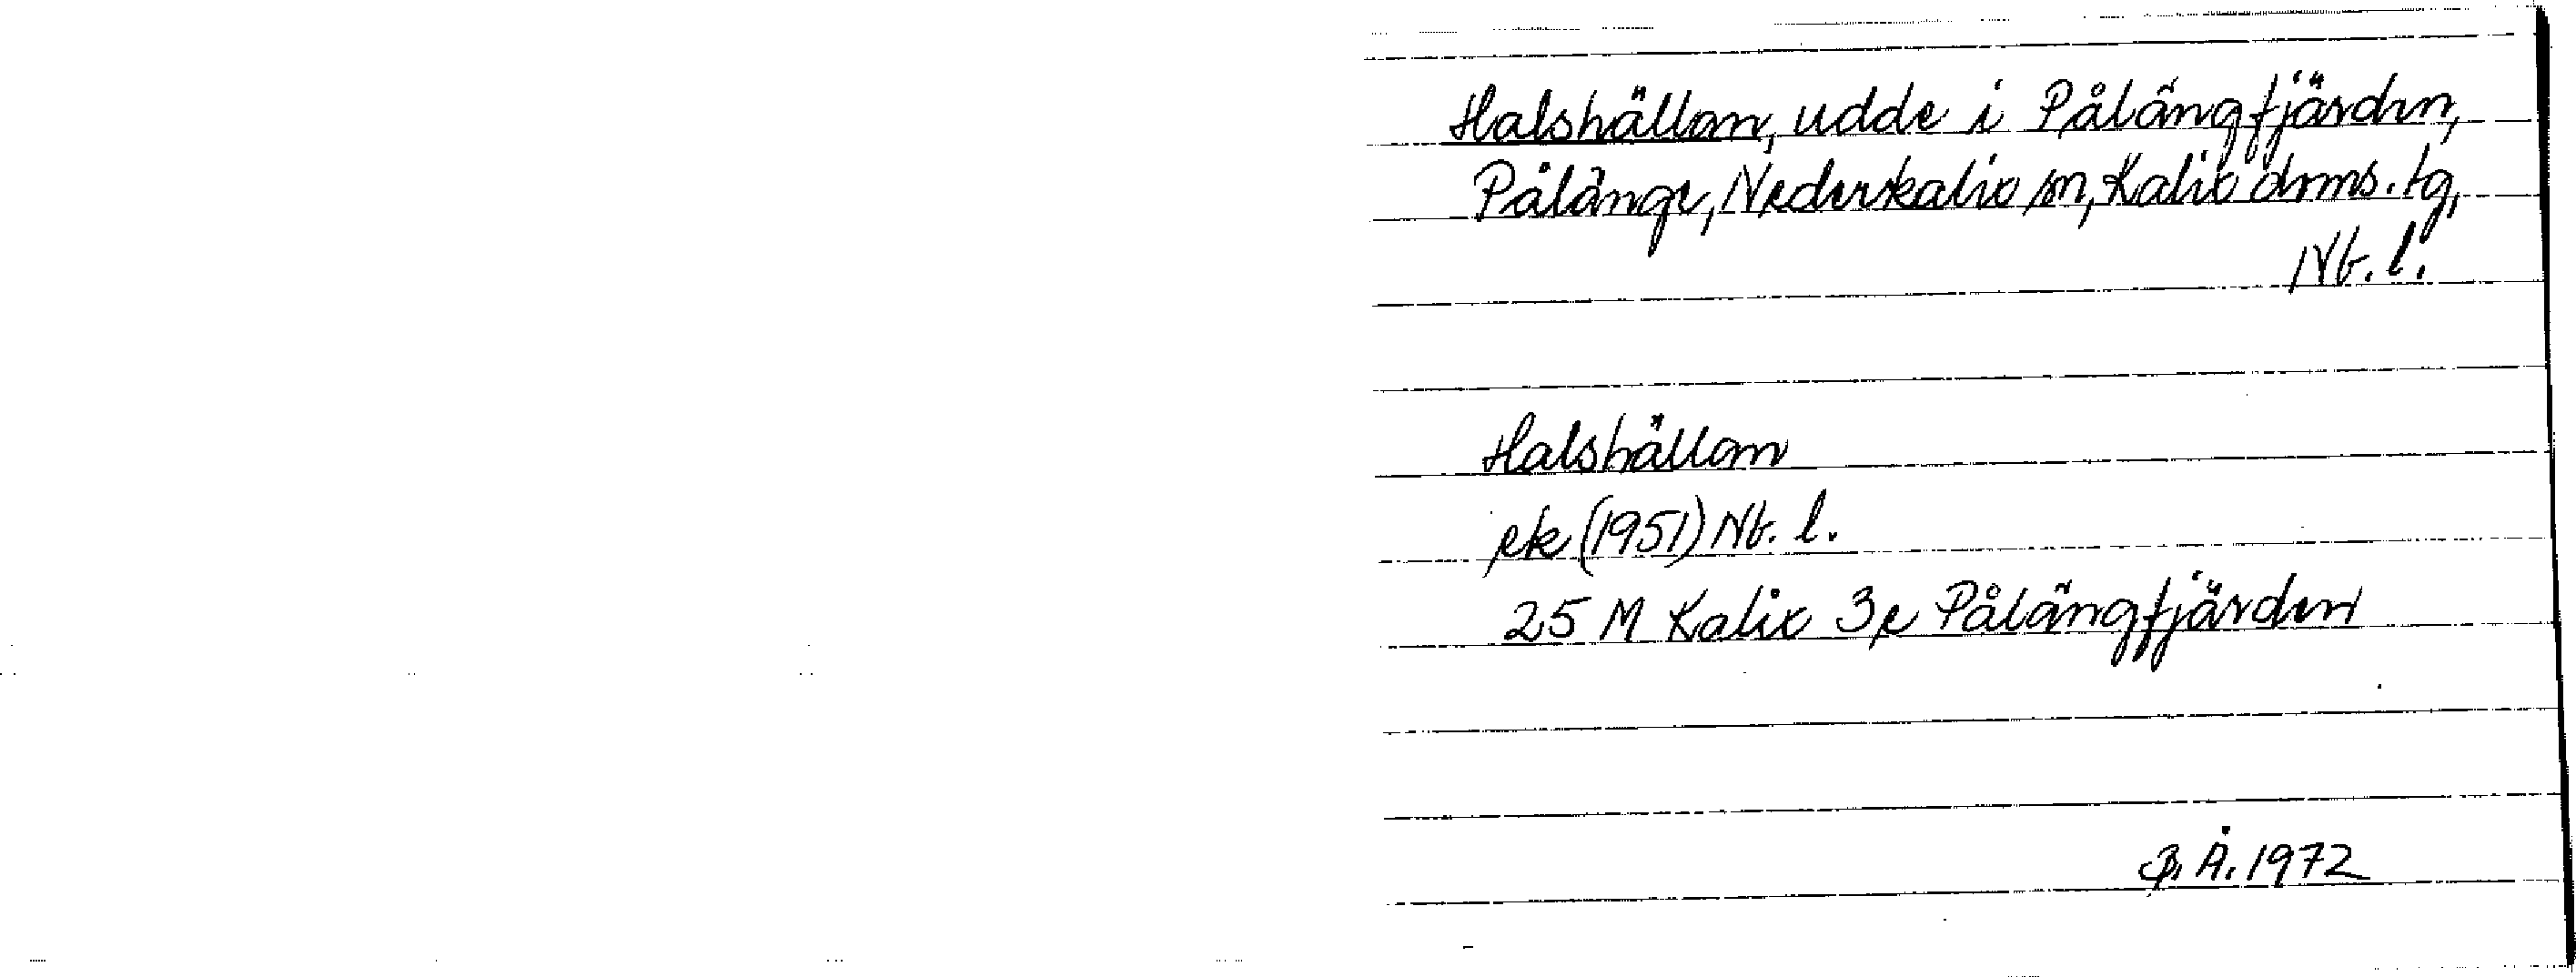 Halshällan, udde i Pålängfjärden,
Pålänge, Nederkalix sn, Kalix doms. tg,
Nb. l.
Halshällan
ek (1951) Nb. l.
25 M Kalix 3e Pålängfjärden
B. Å. 1972